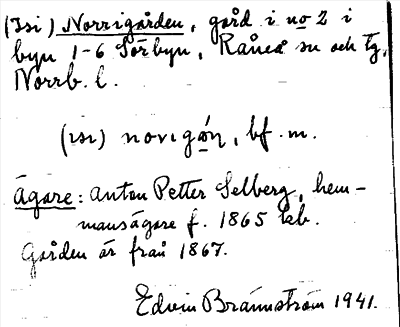 (Isi) Norrigården, gård i no 2 i
byn 1-6 Sörbyn, Råneå sn och tg,
Norrb. l.
(isi) novigǻn, bf. m.
Ägare: Anton Petter Selberg, hem-
mansägare f. 1865 
Gården är från 1867.
Edvin Brännström 1941.